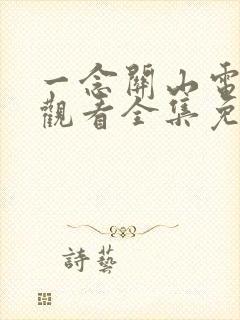 一念關山電
觀看全集免
詩藝